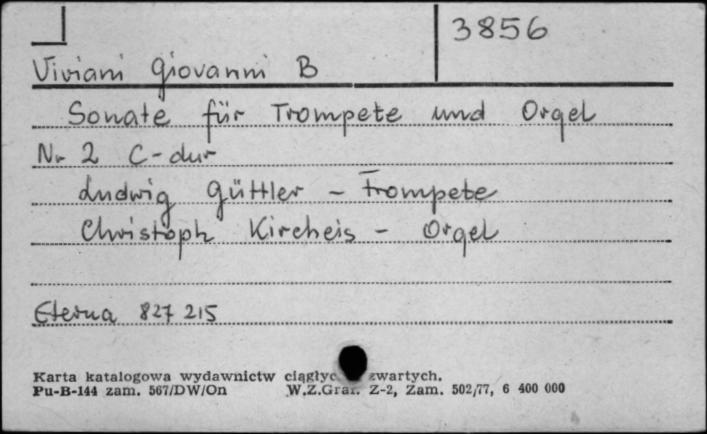 3856
Viviani Giovanni B
Sonate für Trompete und Orgel
Nr 2 C-dur
Ludwig Güttler - Trompete
Christoph Kircheis - Orgel
Eterna 827 215
Karta katalogowa wydawnictw zwartych.
Pu-B-144 zam. 567/DW/On W.Z.Graf. Z-2, Zam. 502/77, 6 400 000